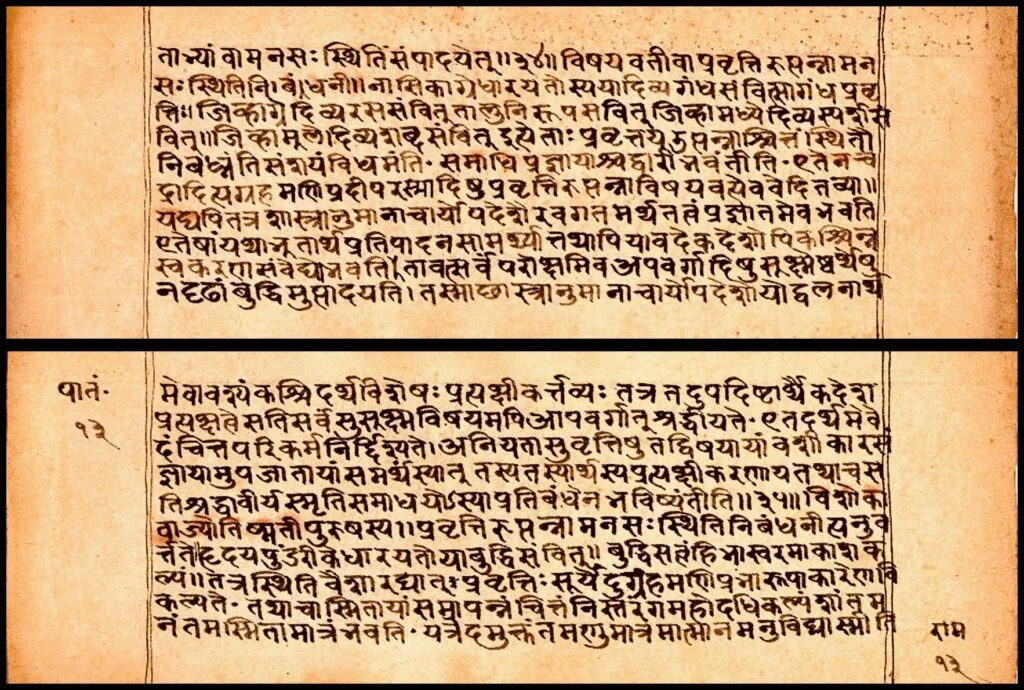 ताभ्यां वा मनसः स्थितिं संपादयेत् ॥३४॥ विषयवती वा प्रवृत्तिरुत्पन्ना मन
सः स्थितिनिबंधनी ॥ नासिकाग्रे धारयतो स्य या दिव्यगंधसंवित्सा गंधप्रवृ
त्तिः ॥ जिव्हाग्रे दिव्यरससंवित् तालुनि रूपसंवित् जिव्हामध्ये दिव्यस्पर्शसं
वित् ॥ जिव्हामुले दिव्यशब्दसंवित् इत्येताः प्रवृत्तय उत्पन्नाश्चित्तं स्थितौ
निबध्नंति संशयं विधमंति॰ समाधिप्रज्ञायाश्च द्वारीभवंतीति॰ एतेन चं
द्रादित्यग्रहमणिप्रदीपरस्मादिषु प्रवृत्तिरुत्पन्ना विषयवत्येव वेदितव्या ॥
यद्यपि तत्र शास्त्रानुमानाचार्योपदेशैरवगतमर्थतत्वं प्रज्ञातमेव भवति
एतेषां यथाभूतार्थप्रतिपादनसामर्थ्यात् तथापि यावदेकदेशोपि कश्चिन्न
स्वकरणसंवेद्यो भवति। तावत्सर्वं परोक्षमिव अपवर्गादिषु सूक्ष्मेष्वर्थेषु
न दृढां बुद्धिमुत्पादयति। तस्माछास्त्रानुमानाचार्योपदेशोपोद्बलनार्थ
पातं॰
१३
मेवावश्यं कश्चिदर्थविशेषः प्रत्यक्षीकर्त्तव्यः तत्र तदुपदिष्टार्थैकदेश
प्रत्यक्षत्वे सति सर्वं सुसूक्ष्मविषयमपि आपवर्गात् श्रद्धीयते॰ एतदर्थमेवे
दं चित्तपरिकर्म निर्द्दिश्यते। अनियतासु वृत्तिषु तद्विषयायां वशीकारसं
ज्ञायामुपजातायां समर्थं स्यात् तस्य तस्यार्थस्य प्रत्यक्षीकरणाय तथा च स
ति श्रद्धावीर्यस्मृतिसमाधयोऽस्याप्रतिबंधेन भविष्यंतीति ॥३५॥ विशोका
वा ज्योतिष्मती पुरुषस्य ॥ प्रवृत्तिरुत्पन्ना मनसः स्थितिनिबंधनीत्यनुव
र्त्तते हृदयपुंडरीके धारयतो या बुद्धिसंवित् ॥ बुद्धिसत्वं हि भास्वरमाकाशक
ल्पं ॥ तत्र स्थितिवैशारद्यात् प्रवृत्तिः सूर्येंदुग्रहमणिप्रभारूपाकारेण वि
कल्पते॰ तथा चास्मितायां समापन्नं चित्तं निस्तरंगमहोदधिकल्पं शांतम
नंतमस्मितामात्रं भवति॰ यत्रेदमुक्तं तमणुमात्रमात्मानमनुविद्यास्मीति
राम
१३